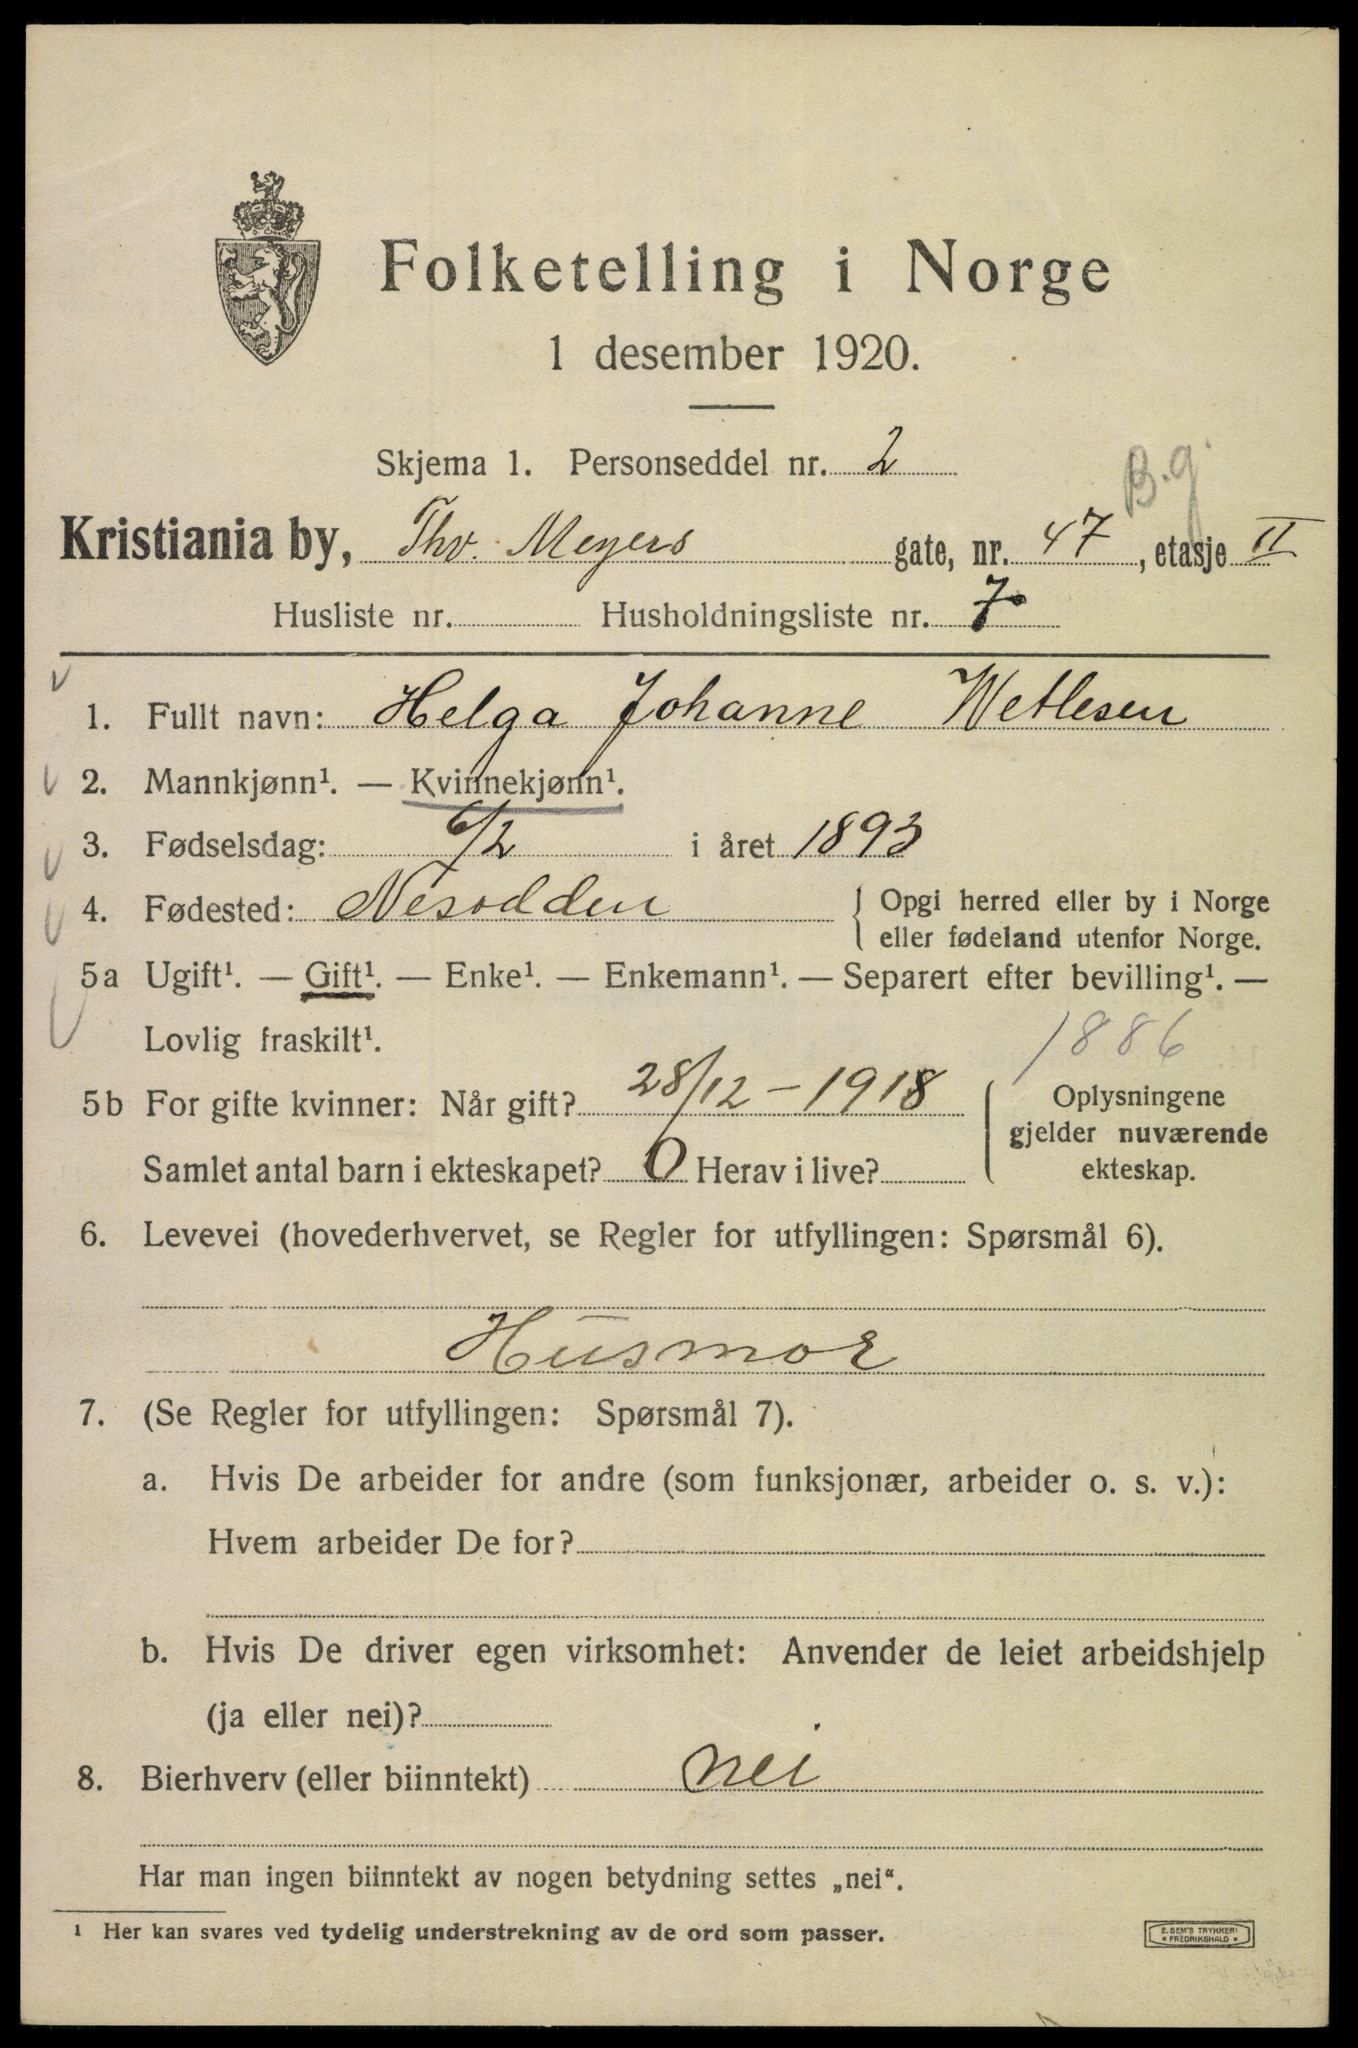 Folketelling i Norge
1 desember 1920.
Skjema 1. Personseddel nr. 2
B.g.
Kristiania by, Thv. Meyers gate, nr. 47, etasje II
Husliste nr. Husholdningsliste nr. 7
1. Fullt navn: Helga Johanne Wetlesen
2. Mannkjønn¹. — Kvinnekjønn¹.
3. Fødselsdag: 6/2 i året 1893
4. Fødested: Nesodden { Opgi herred eller by i Norge
eller fødeland utenfor Norge.
5a Ugift¹. — Gift¹. — Enke¹. — Enkemann¹. — Separert efter bevilling¹. —
Lovlig fraskilt¹.
1886
5b For gifte kvinner: Når gift? 28/12 – 1918
Samlet antal barn i ekteskapet? 0 Herav i live?
Oplysningene
gjelder nuværende
ekteskap.
6. Levevei (hovederhvervet, se Regler for utfyllingen: Spørsmål 6).
Husmor
7. (Se Regler for utfyllingen: Spørsmål 7).
a. Hvis De arbeider for andre (som funksjonær, arbeider o. s. v.):
Hvem arbeider De for?
b. Hvis De driver egen virksomhet: Anvender de leiet arbeidshjelp
(ja eller nei)?
8. Bierhverv (eller biinntekt) nei
Har man ingen biinntekt av nogen betydning settes „nei“.
¹ Her kan svares ved tydelig understrekning av de ord som passer.
E. SEM'S TRYKKERI
• FREDRIKSHALD •